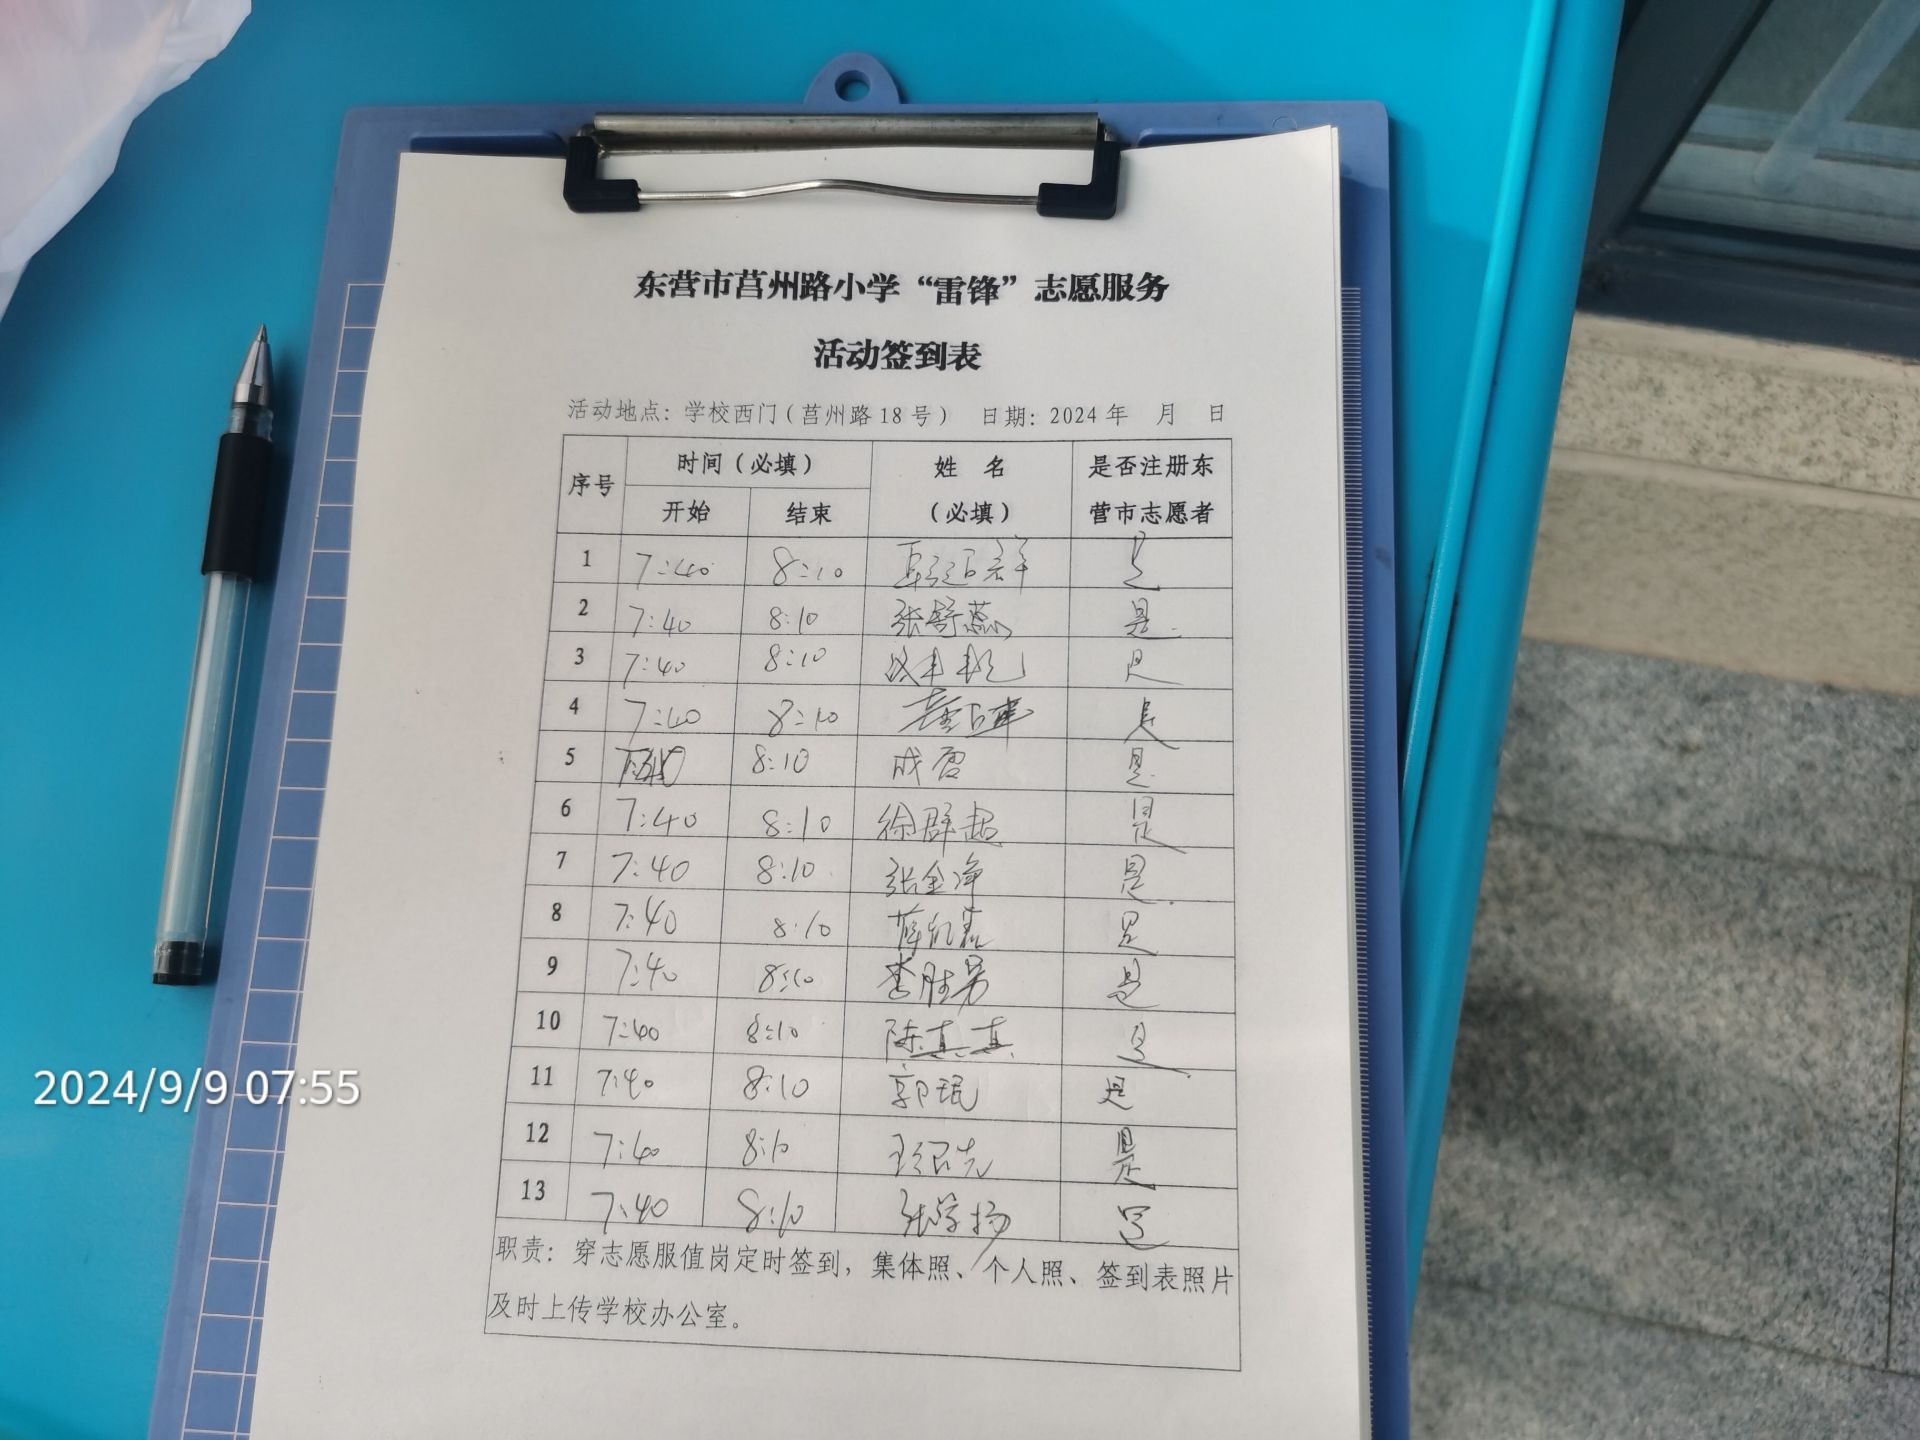 东营市莒州路小学“雷锋”志愿服务
活动签到表
活动地点：学校西门（莒州路18号） 日期：2024年 月 日
序号 时间（必填） 开始 结束 姓 名（必填） 是否注册东营市志愿者
1 7:40 8:10 是
2 7:40 8:10 张舒蕊 是
3 7:40 8:10 是
4 7:40 8:10 是
5 8:10 成雷 是
6 7:40 8:10 徐群超 是
7 7:40 8:10 张金净 是
8 7:40 8:10 是
9 7:40 8:10 李胜男 是
10 7:40 8:10 陈真真 是
11 7:40 8:10 郭琨 是
12 7:40 8:10 是
13 7:40 8:10 张学扬 是
职责：穿志愿服值岗定时签到，集体照、个人照、签到表照片
及时上传学校办公室。
2024/9/9 07:55